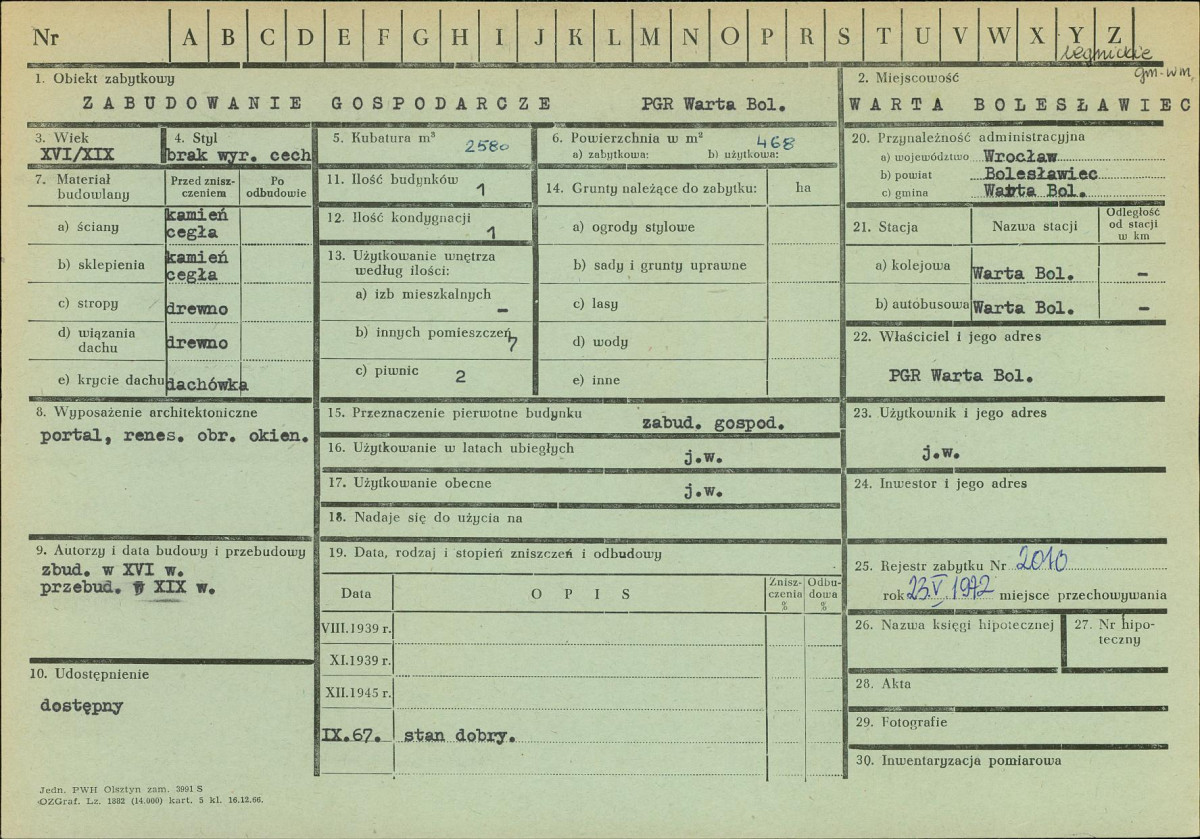 Nr A B C D E F G H I J K L M N O P R S T U V W X Y Z
legnickie
gm-wm.
1. Obiekt zabytkowy
ZABUDOWANIE GOSPODARCZE PGR Warta Bol.
2. Miejscowość
WARTA BOLESŁAWIEC
3. Wiek
XVI/XIX
4. Styl
brak wyr. cech
5. Kubatura m³
2580
6. Powierzchnia w m²
468
a) zabytkowa: b) użytkowa:
7. Materiał budowlany
Przed zniszczeniem
Po odbudowie
a) ściany
kamień
cegła
b) sklepienia
kamień
cegła
c) stropy
drewno
d) wiązania dachu
drewno
e) krycie dachu
dachówka
8. Wyposażenie architektoniczne
portal, renes. obr. okien.
9. Autorzy i data budowy i przebudowy
zbud. w XVI w.
przebud. w XIX w.
10. Udostępnienie
dostępny
11. Ilość budynków
1
12. Ilość kondygnacji
1
13. Użytkowanie wnętrza
według ilości:
a) izb mieszkalnych
–
b) innych pomieszczeń
7
c) piwnic 2
14. Grunty należące do zabytku: ha
a) ogrody stylowe
b) sady i grunty uprawne
c) lasy
d) wody
e) inne
15. Przeznaczenie pierwotne budynku
zabud. gospod.
16. Użytkowanie w latach ubiegłych
j.w.
17. Użytkowanie obecne
j.w.
18. Nadaje się do użycia na
19. Data, rodzaj i stopień zniszczeń i odbudowy
Data OPIS Zniszczenia % Odbudowa %
VIII.1939 r.
XI.1939 r.
XII.1945 r.
IX.67. stan dobry.
20. Przynależność administracyjna
a) województwo Wrocław
b) powiat Bolesławiec
c) gmina Warta Bol.
21. Stacja Nazwa stacji Odległość od stacji w km
a) kolejowa Warta Bol. –
b) autobusowa Warta Bol. –
22. Właściciel i jego adres
PGR Warta Bol.
23. Użytkownik i jego adres
j.w.
24. Inwestor i jego adres
25. Rejestr zabytku Nr 2010
rok 23.V.1972 miejsce przechowywania
26. Nazwa księgi hipotecznej
27. Nr hipoteczny
28. Akta
29. Fotografie
30. Inwentaryzacja pomiarowa
Jedn. PWH Olsztyn zam. 3991 S
OZGraf. Lz. 1882 (14.000) kart. 5 kl. 16.12.66.